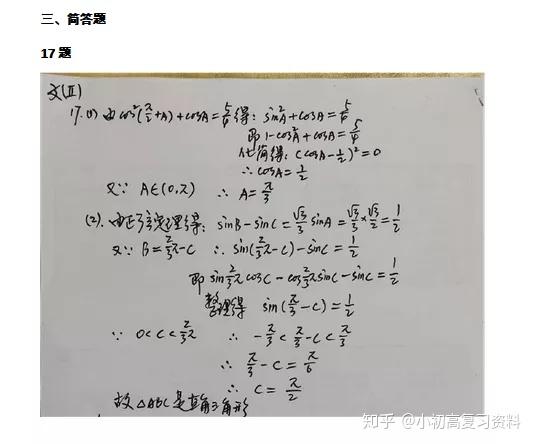 三、简答题
17题
文(Ⅱ)
17.(1) 由cos²(π/2+A)+cosA=5/4得: sin²A+cosA=5/4
即1-cos²A+cosA=5/4
化简得: (cosA-1/2)²=0
∴cosA=1/2
又∵ A∈(0,π) ∴ A=π/3
(2). 由正弦定理得: sinB-sinC=√3/3 sinA=√3/3×√3/2=1/2
又∵ B=2/3π-C ∴ sin(2/3π-C)-sinC=1/2
即 sin2/3π cosC-cos2/3πsinC-sinC=1/2
整理得 sin(π/3-C)=1/2
∵ 0<C<2/3π ∴ -π/3<π/3-C<π/3
∴ π/3-C=π/6
∴ C=π/2
故△ABC是直角三角形
知乎 @小初高复习资料